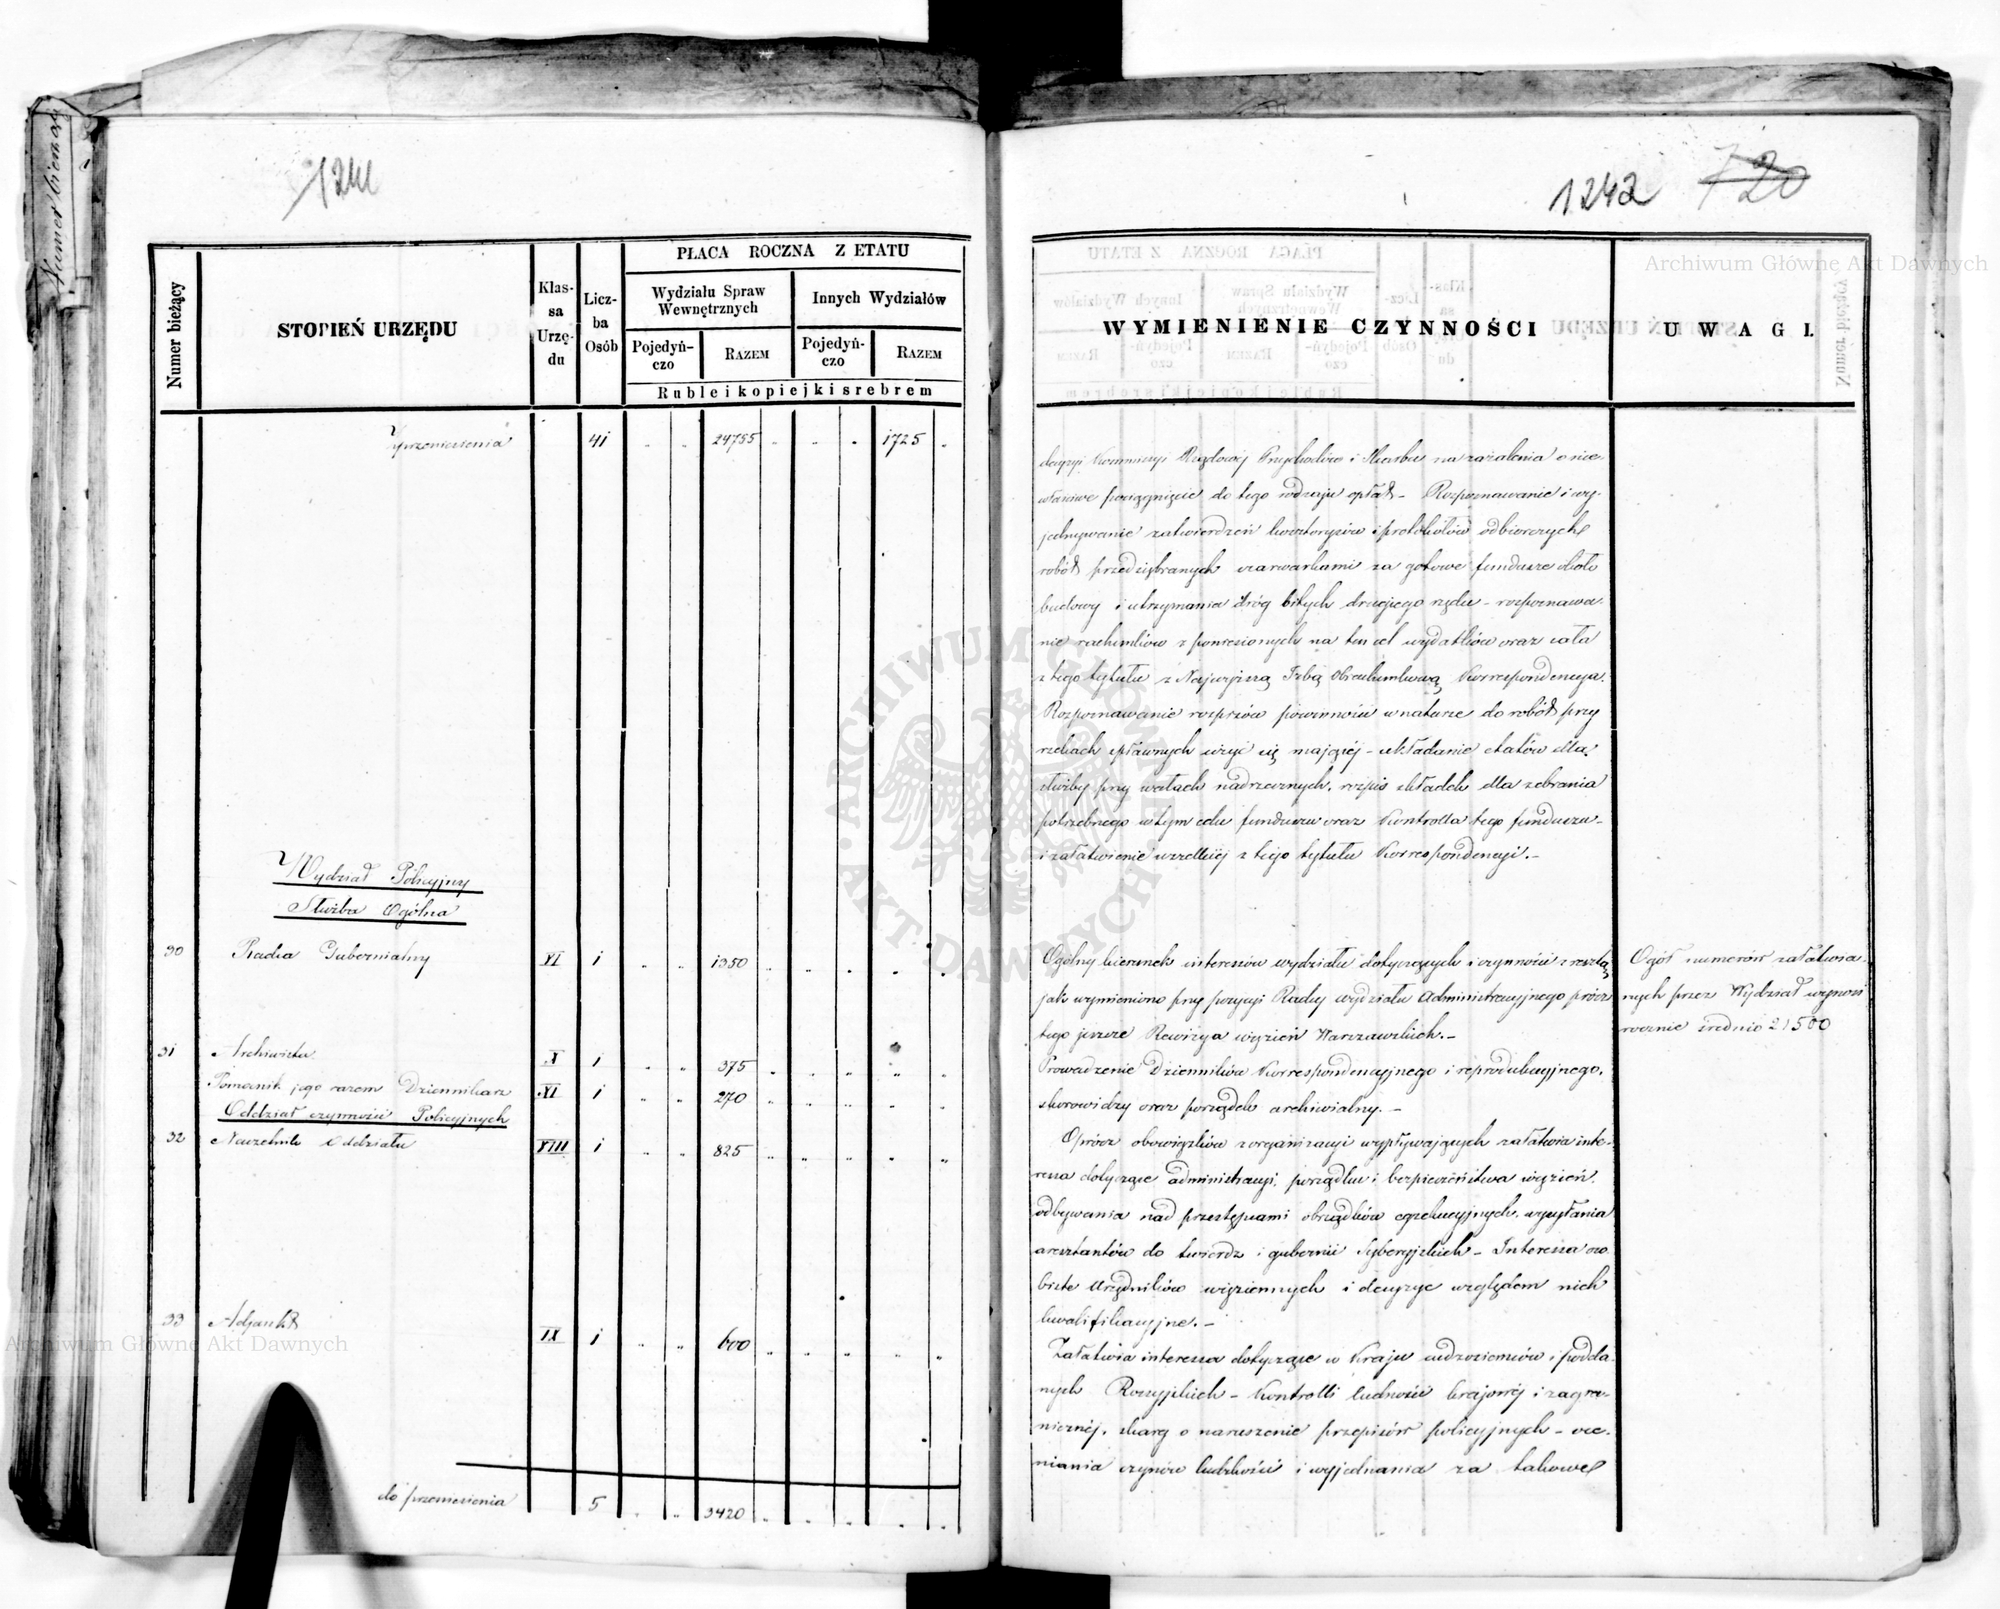 Numer bieżący
1241
1242 720
Archiwum Główne Akt Dawnych
Numer bieżący
STOPIEŃ URZĘDU
Klas-
sa
Urzę-
du
Licz-
ba
Osób
PŁACA ROCZNA Z ETATU
Wydziału Spraw
Wewnętrznych
Innych Wydziałów
Pojedyń-
czo
RAZEM
Pojedyń-
czo
RAZEM
Ruble i kopiejki srebrem
Z przeniesienia 41 24755 1725
Wydział Policyjny
Służba Ogólna
30 Radca Gubernialny VI 1 1350
31 Archiwista X 1 375
Pomocnik jego razem Dziennikarz XI 1 270
Oddział czynności Policyjnych
32 Naczelnik Oddziału VIII 1 825
33 Adjunkt IX 1 600
do przeniesienia 5 3420
WYMIENIENIE CZYNNOŚCI
UWAGI.
decyzji Kommissyi Rządowéj Przychodów i Skarbu na zażalenia o nie-
właściwe pociągnięcie do tego rodzaju opłat – Rozpoznawanie i wy-
jednywanie zatwierdzeń kosztorysów i protokółów odbiorczych
robót przedsiębranych szarwarkami za gotowe fundusze około
budowy i utrzymania dróg bitych drugiego rzędu – rozpoznawa-
nie rachunków z poniesionych na ten cel wydatków oraz cała
z tego tytułu z Najwyższą Izbą Obrachunkową Korrespondencya.
Rozpoznawanie rozpisów powinności w naturze do robót przy
rzekach spławnych użyć się mającéj – układanie etatów dla
służby przy wałach nadrzecznych, rozpis składek dla zebrania
potrzebnego w tym celu funduszu oraz Kontrolla tego funduszu –
i załatwienie wszelkiéj z tego tytułu Korrespondencyi. –
Ogólny kierunek interessów wydziału dotyczących i czynności zresztą
jak wymieniono przy pozycyi Radcy wydziału Administracyjnego prócz
tego jeszcze Rewizya więzień Warszawskich. –
Prowadzenie Dzienników Korrespondencyjnego i reprodukcyjnego,
skorowidzy oraz porządek archiwialny. –
Oprócz obowiązków z organizacyi wypływających załatwia inte-
ressa dotyczące administracyi, porządku i bezpieczeństwa więzień,
odbywania nad przestępcami obrządków egzekucyjnych, wysyłania
aresztantów do twierdz i gubernii Syberyjskich – Interessa oso-
biste Urzędników więziennych i decyzye względem nich
kwalifikacyjne. –
Załatwia interessa dotyczące w Kraju cudzoziemców i podda-
nych Rossyjskich – Kontrolli ludności krajowéj i zagra-
nicznéj, skarg o naruszenie przepisów policyjnych – oce-
niania czynów ludzkości i wyjednania za takowe
Ogół numerów załatwia-
nych przez Wydział wynosi
rocznie średnio 21500
ARCHIWUM GŁÓWNE AKT DAWNYCH
Archiwum Główne Akt Dawnych